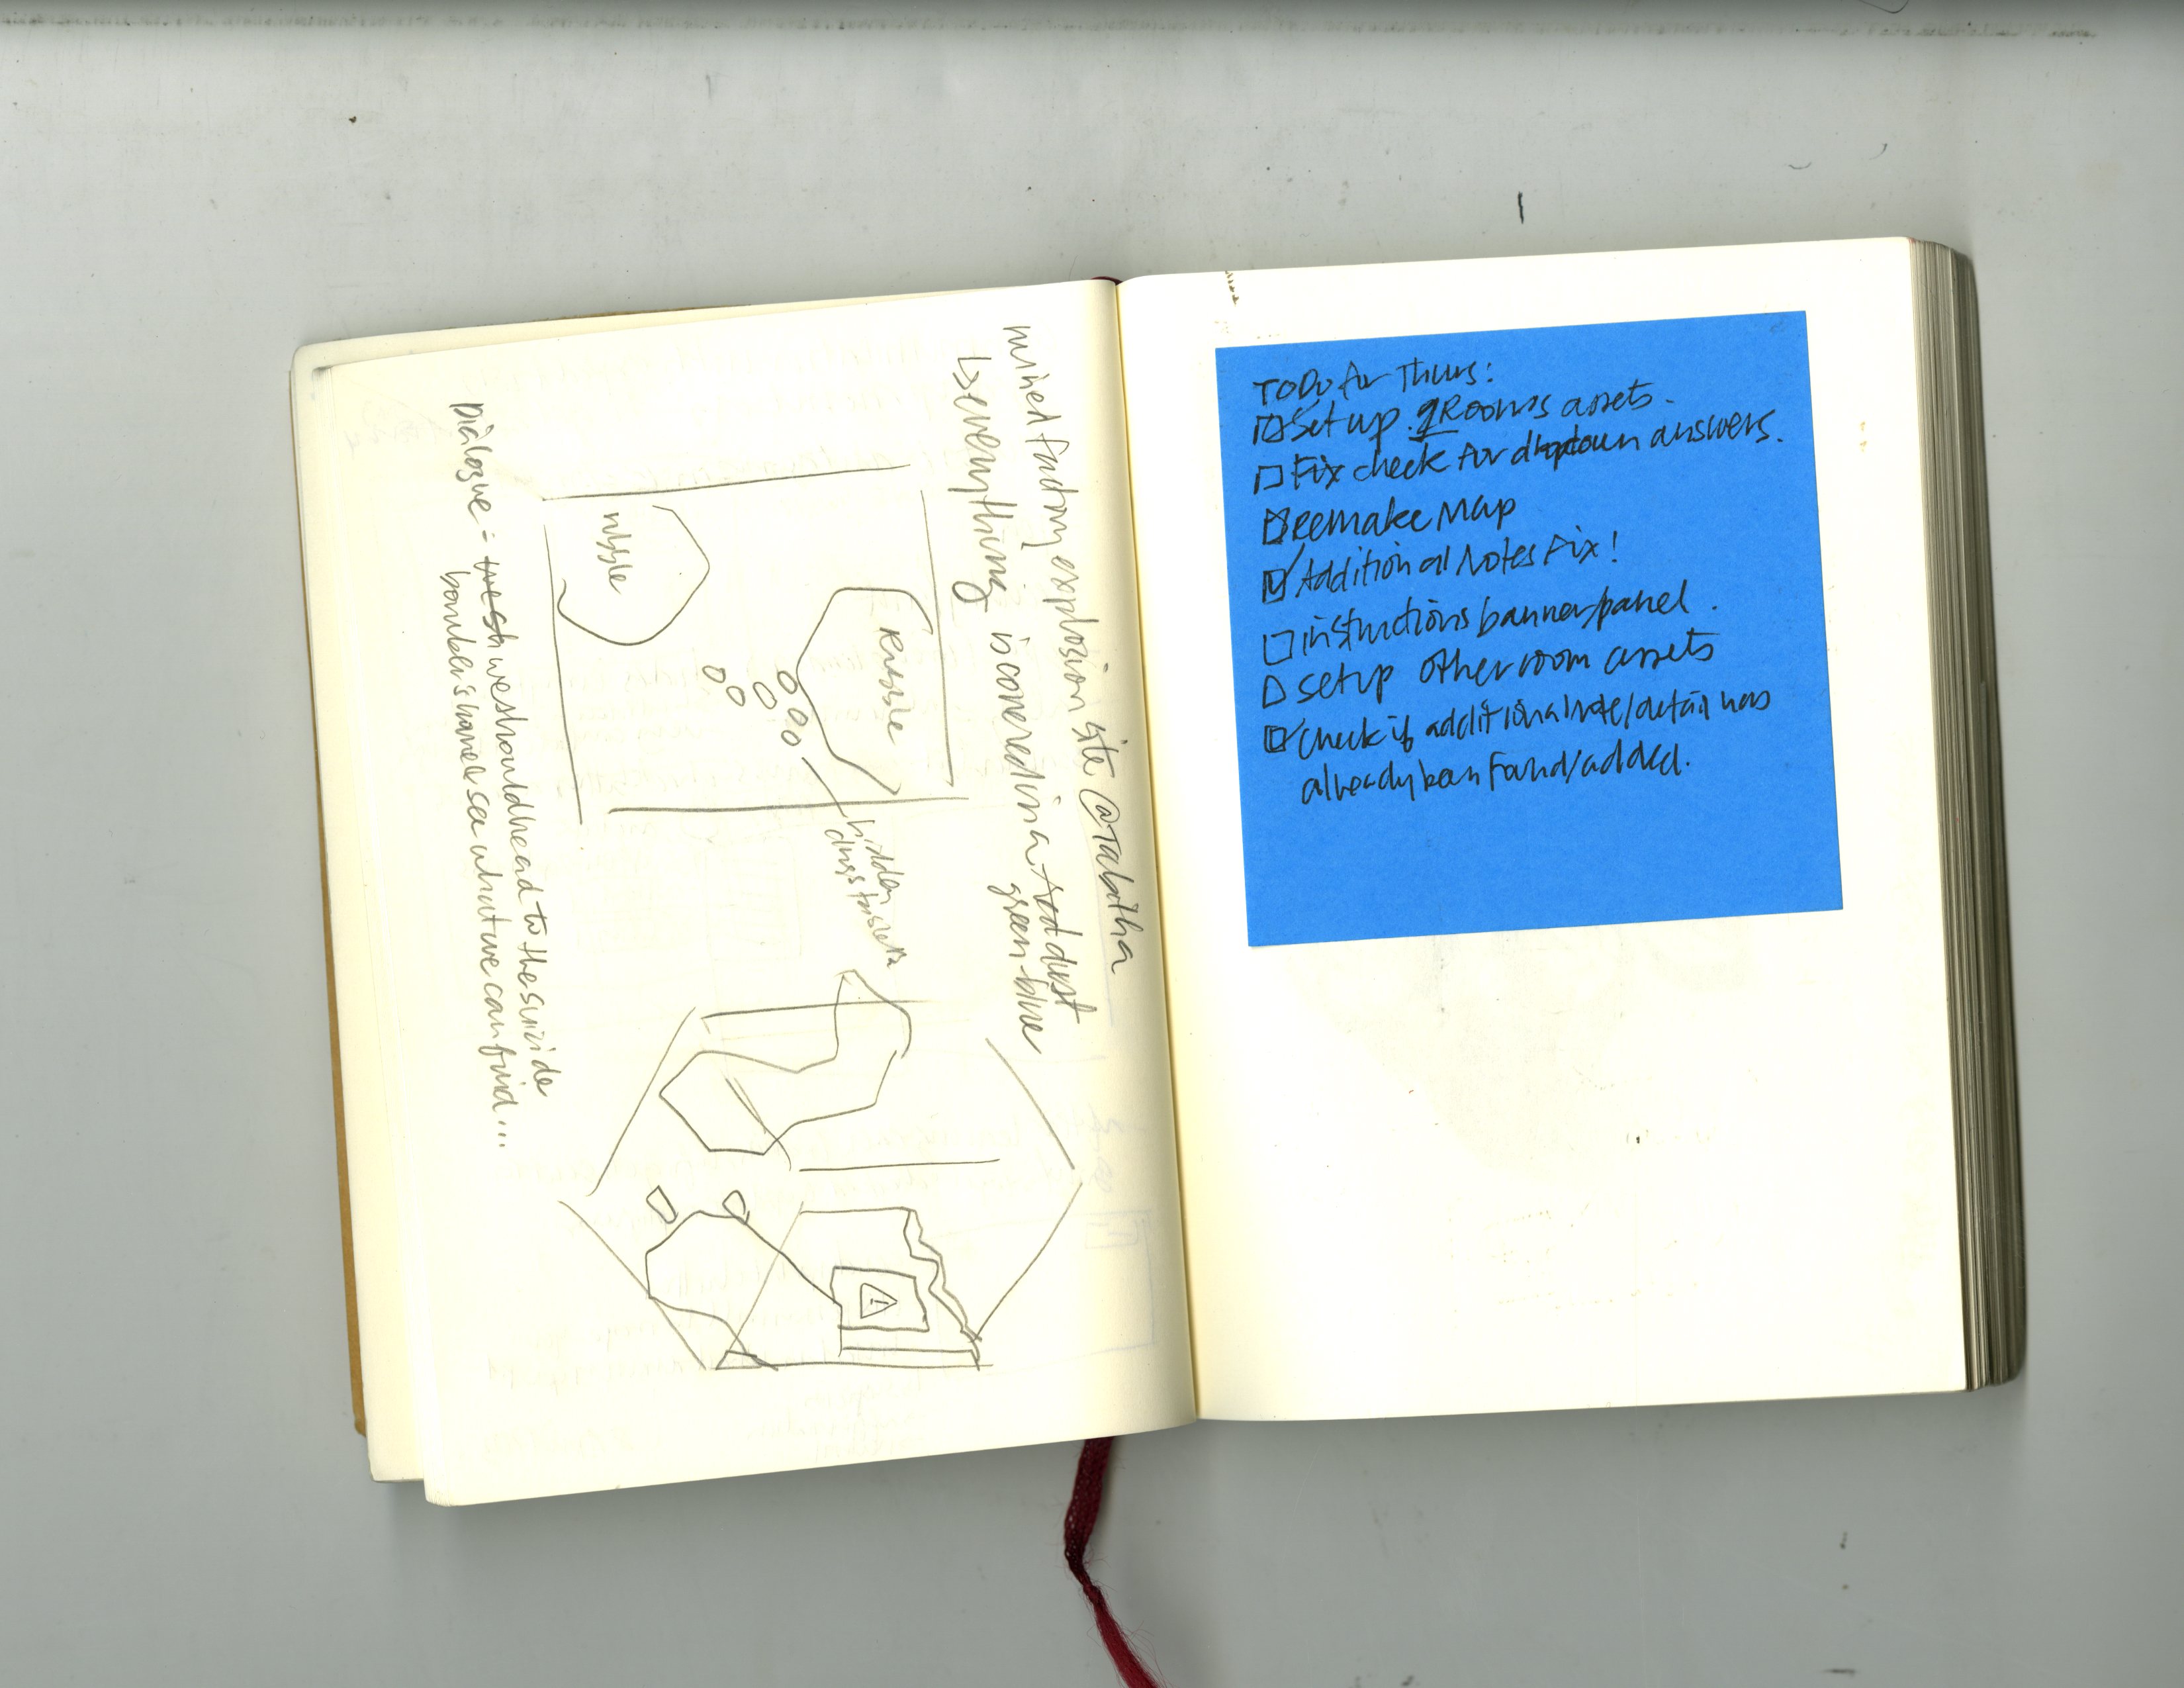 ruined factory explosion site @Tabitha
↳ everything is covered in a red dust
green-blue
rubble
Rubble
hidden
drugs
!
Dialogue: we sh we should head to the suicide
bomber's home & see what we can find...
TODO for Thurs:
Set up 2 Rooms assets.
Fix check for dropdown answers.
Remake Map
Additional Notes Fix!
instructions banner/panel.
setup other room assets
Check if additional note/detail has
already been found/added.